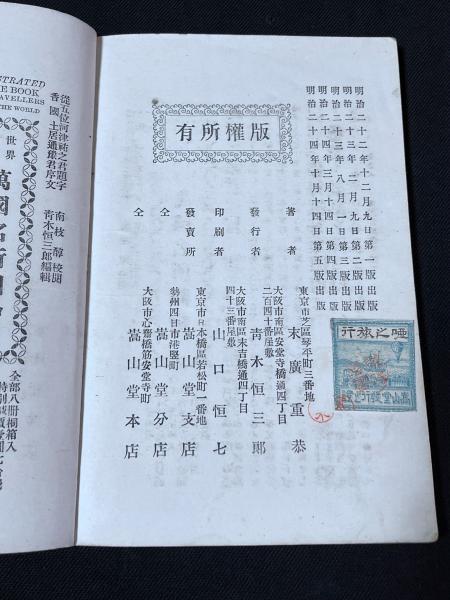 明治二十二年十二月九日第一版出版
明治二十三年二月九日第二版出版
明治二十三年八月一日第三版出版
明治二十四年四月十四日第四版出版
明治二十四年十月十四日第五版出版
版權所有
東京市芝區琴平町三番地
著者 末廣重恭
大阪市南區安堂寺橋通四丁目
二百四十番屋敷
發行者 靑木恒三郎
大阪市南區末吉橋通四丁目
四十三番屋敷
印刷者 山口恒七
東京市日本橋區若松町一番地
發賣所 嵩山堂支店
勢州四日市港竪町
仝 嵩山堂分店
大阪市心齋橋筋安堂寺町
仝 嵩山堂本店
啞之旅行
STRATED
E BOOK
AVELLERS
THE WORLD
從五位河津祐之君題字
香國土居通豫君序文
南枝醇校閲
靑木恒三郎編輯
世界
萬國名所圖
全部八冊桐箱入